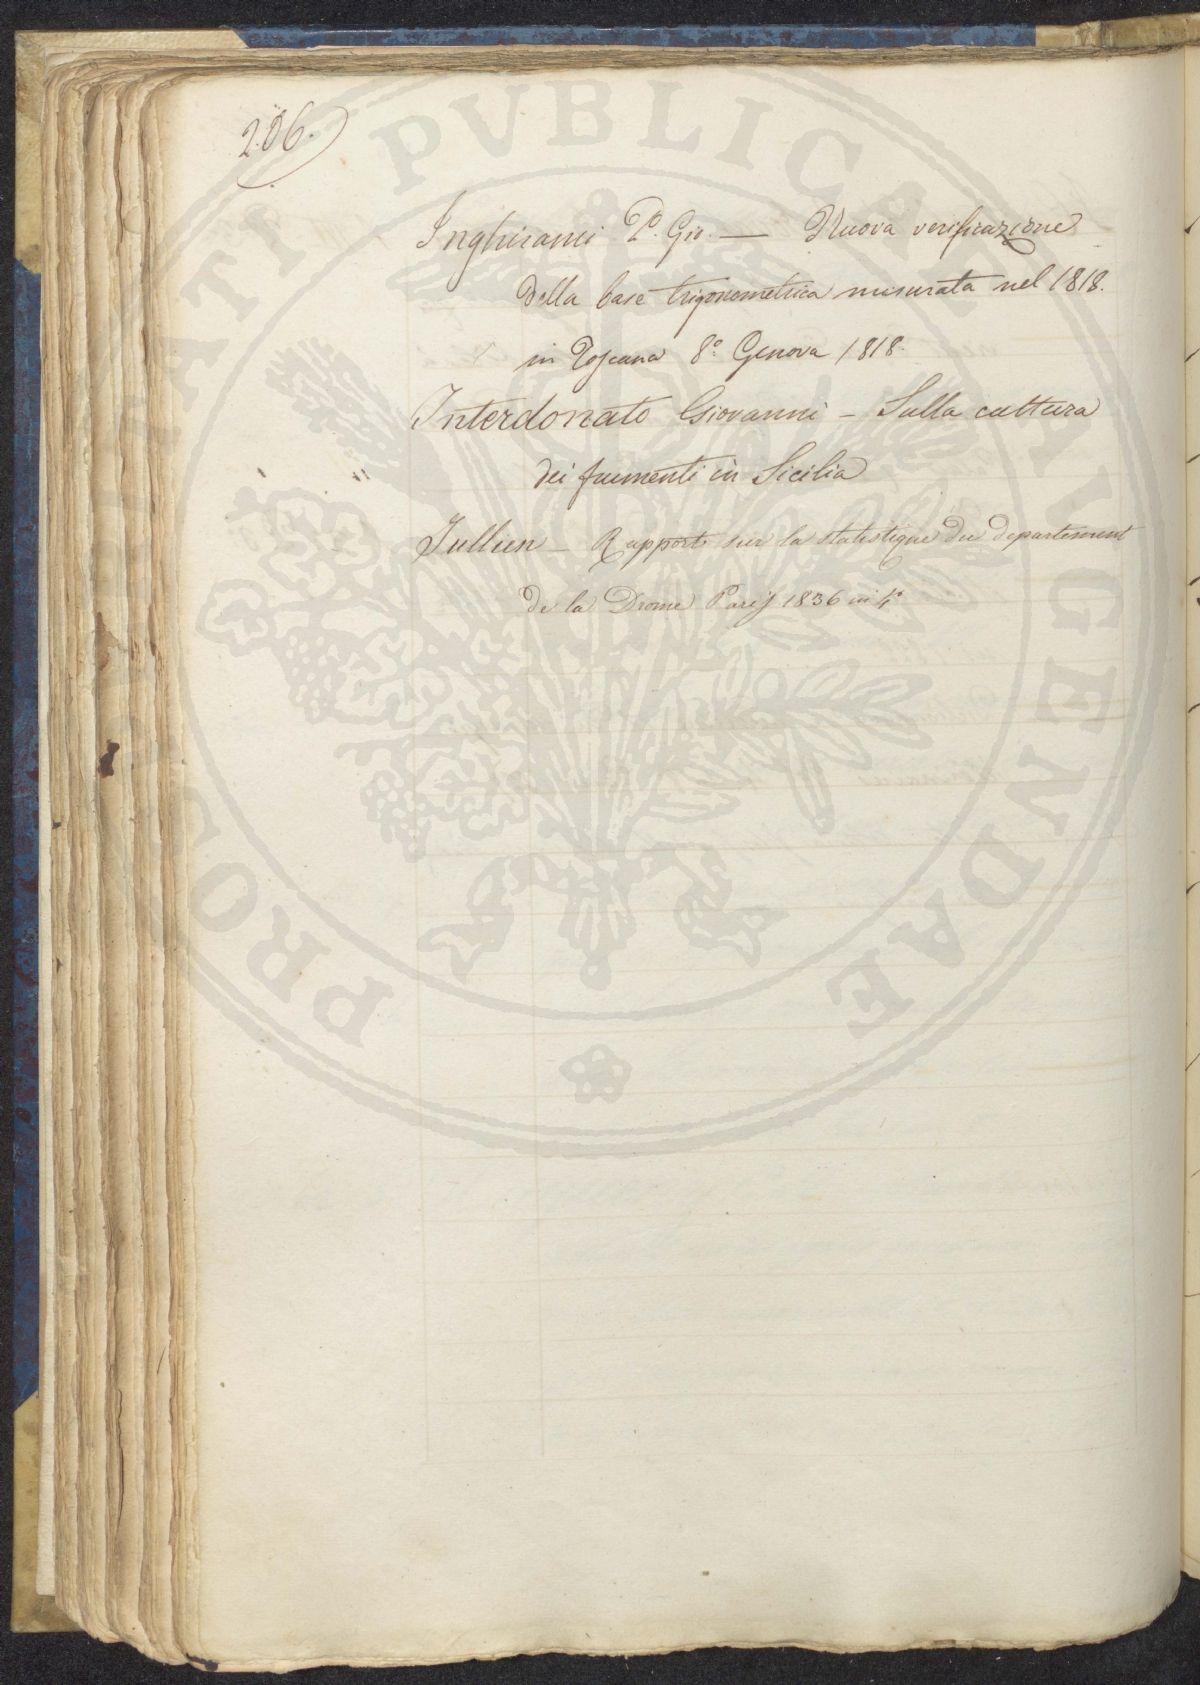 206.
Inghirami P. Gio. — Nuova verificazione
della base trigonometrica misurata nel 1818.
in Toscana 8º Genova 1818.
Interdonato Giovanni - Sulla cultura
dei frumenti in Sicilia
Jullien - Rapport sur la statistique du departement
de la Drome Paris 1836 in 4º
PROSPERITATI PVBLICAE AVGENDAE